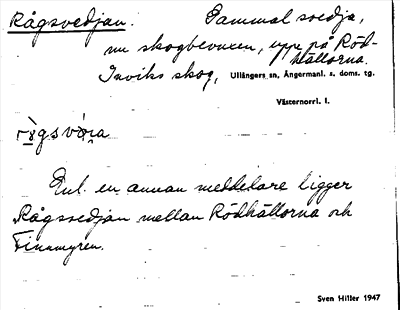 Rågsvedjan. Gammal svedja,
nu skogbevuxen, uppe på Röd-
hällorna.
Inviks skog, Ullångers sn, Ångermanl. s. doms. tg.
Västernorrl. l.
Enl. en annan meddelare ligger
Rågsvedjan mellan Rödhällorna och
Finnmyren.
Sven Hiller 1947